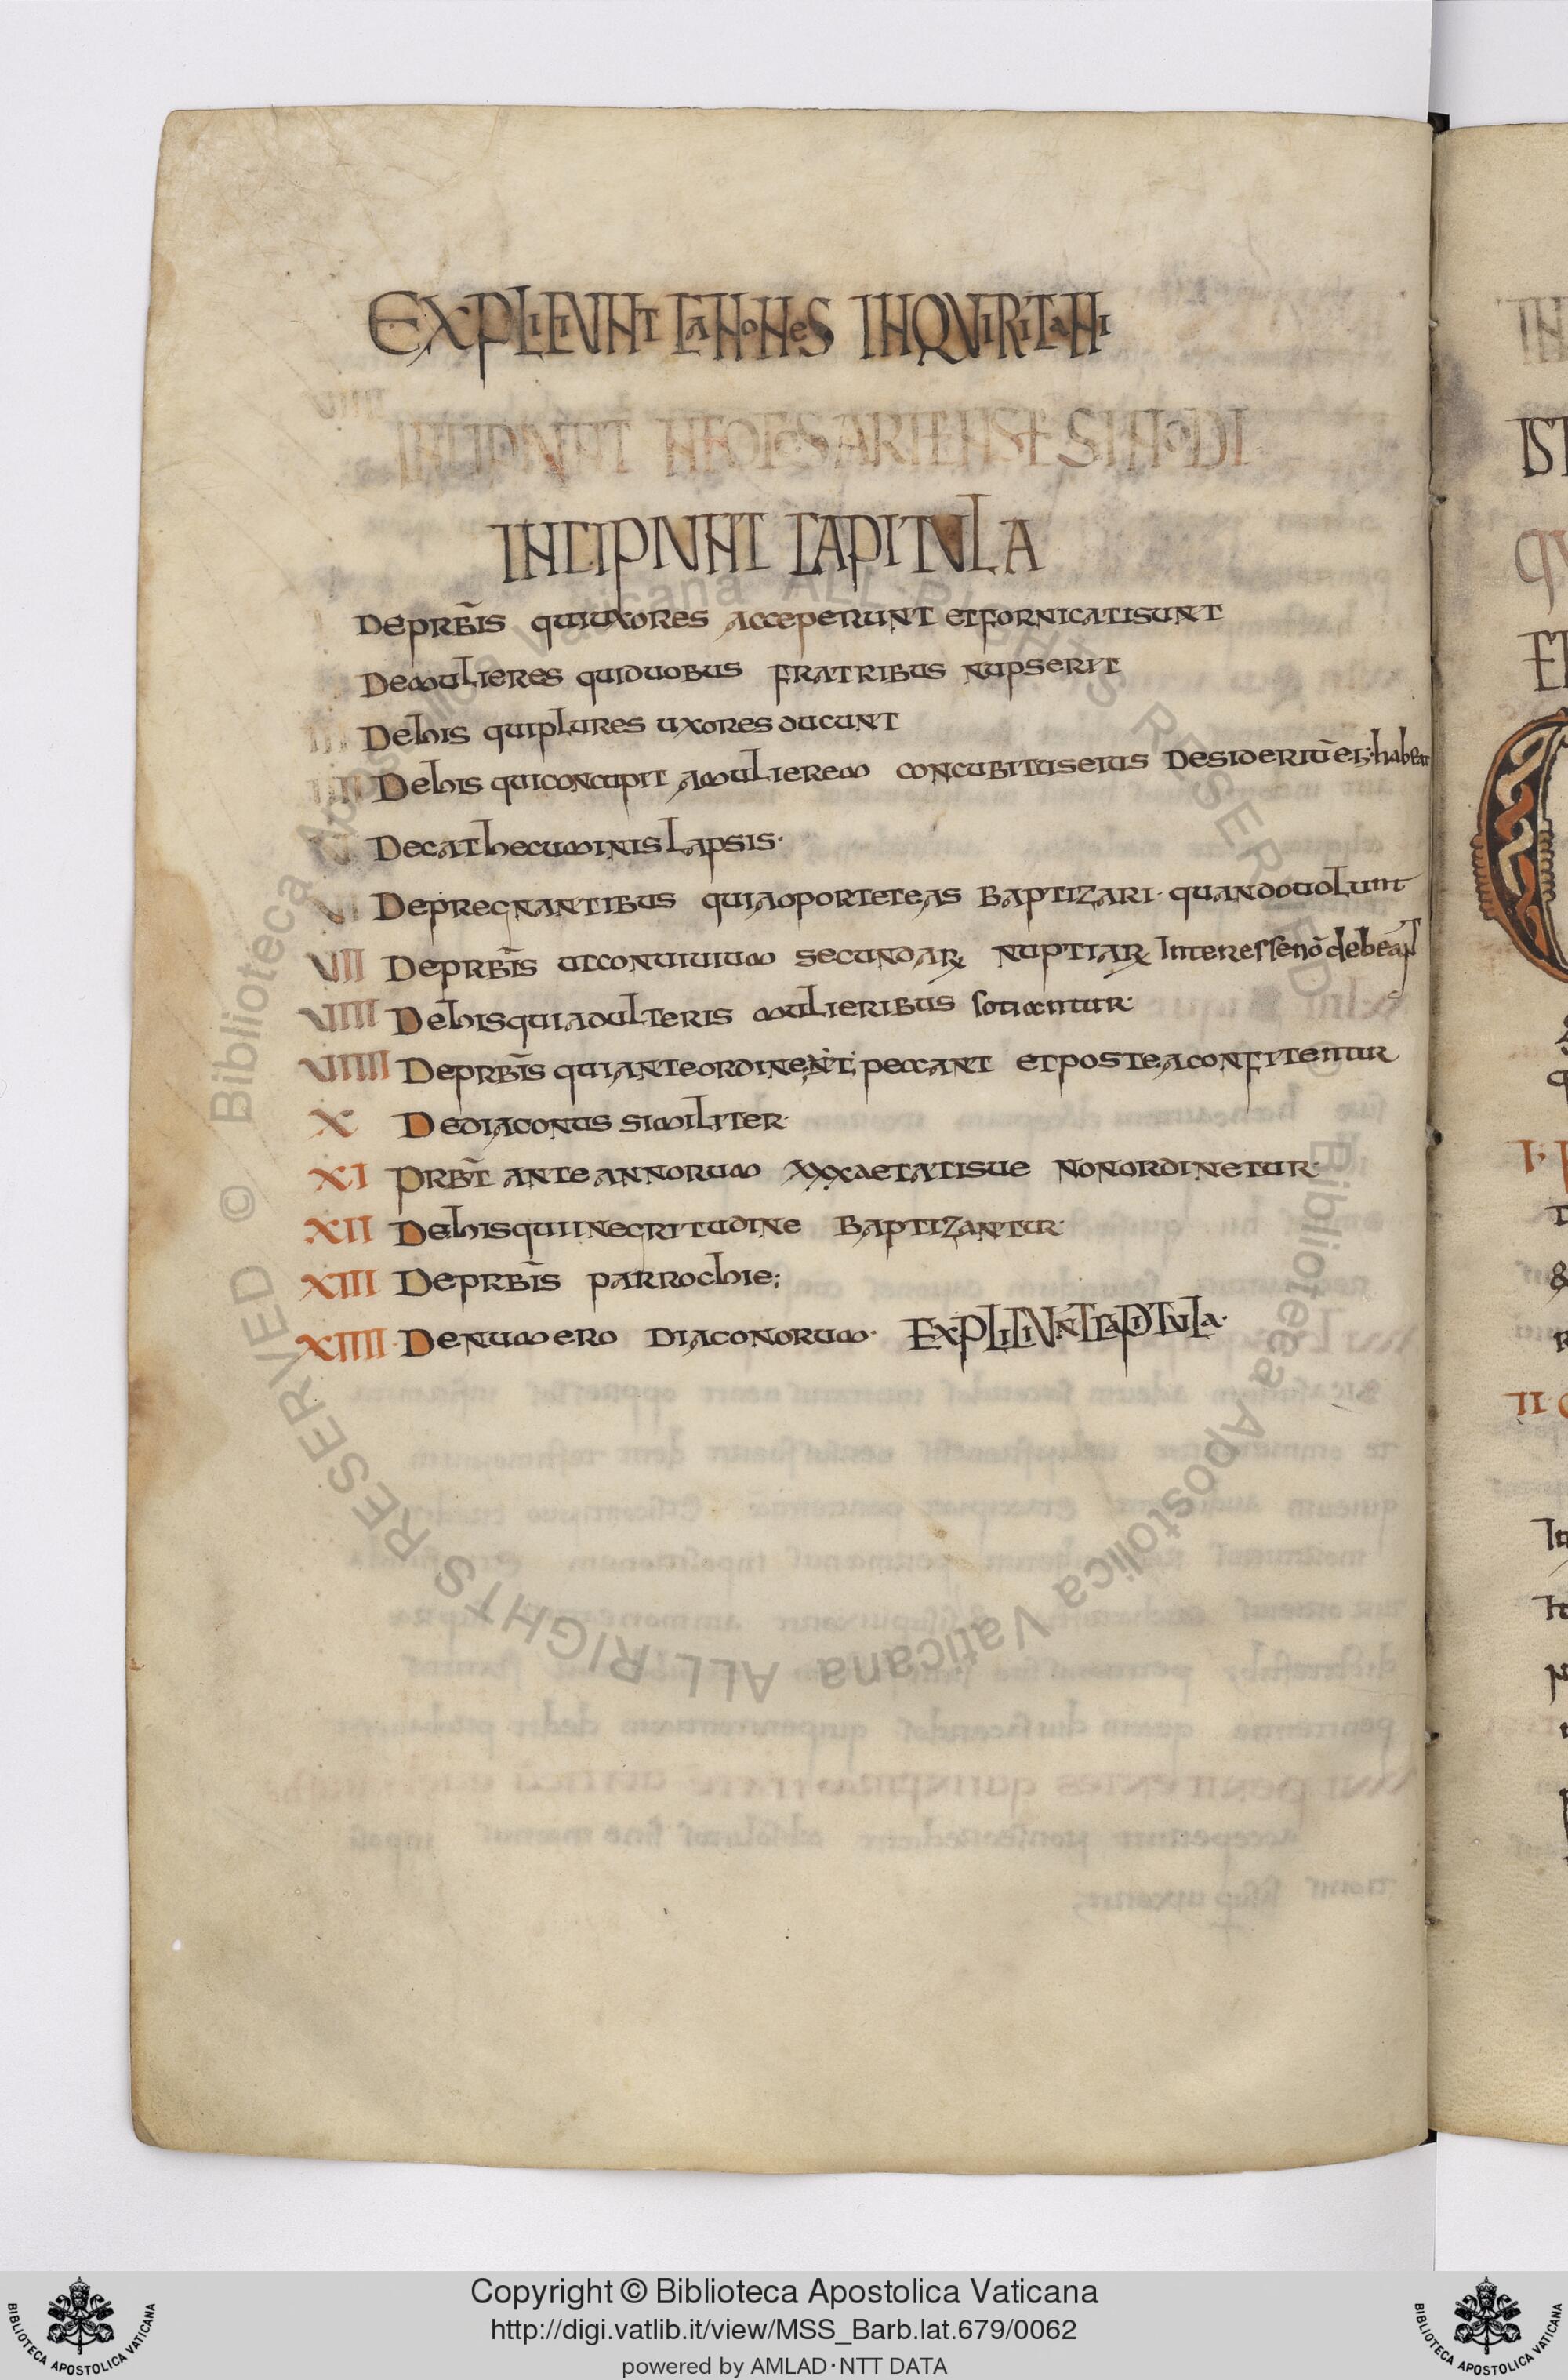 EXPLICIVNT CANONES INQVIRITANI
INCIPIVNT NEOCESARIENSE SINODI
INCIPIVNT CAPITVLA
De prb̄is qui uxores acceperunt et fornicati sunt
De mulieres qui duobus fratribus nupserit
III De his qui plures uxores ducunt
IIII De his qui concupit a mulierem concubitus eius desideriū ei; habeat
V De cathecuminis lapsis·
VI De pregnantibus quia oportet eas baptizari· quando uolunt
VII De prb̄is ut conuiuium secundar nuptiar Interesse nō debeant
VIIII De his qui adulteris mulieribus sotiantur·
VIIIII De prb̄is qui ante ordinent; peccant et postea confitentur
X De diaconus similiter·
XI Prb̄t ante annorum XXX aetatis ue non ordinetur·
XII De his qui in egritudine baptizantur·
XIII De prb̄is parrochie;
XIIII· De numero diaconorum· EXPLICIVNT CAPITVLA·
IN
IST
QV
ET
I·
II·
© Biblioteca Apostolica Vaticana ALL RIGHTS RESERVED
© Biblioteca Apostolica Vaticana ALL RIGHTS RESERVED
Copyright © Biblioteca Apostolica Vaticana
http://digi.vatlib.it/view/MSS_Barb.lat.679/0062
powered by AMLAD·NTT DATA
BIBLIOTECA APOSTOLICA VATICANA
BIBLIOTECA APOSTOLICA VATICANA